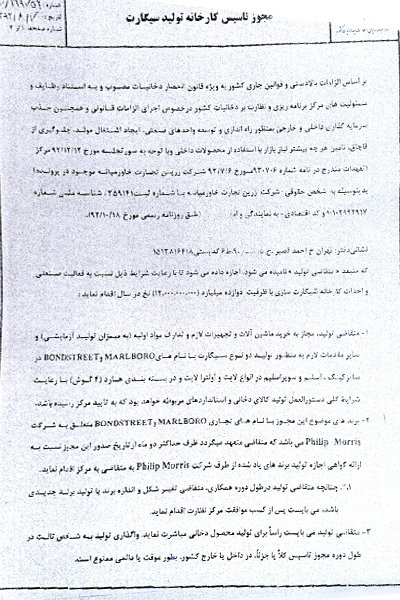 شماره: ۰/۱۹۹/۵۶
مجوز تاسیس کارخانه تولید سیگارت
شماره صفحه: ۱ از ۲
بر اساس الزامات بالادستی و قوانین جاری کشور به ویژه قانون انحصار دخانیات مصوب و به استناد وظایف و
مسئولیت های مرکز برنامه ریزی و نظارت بر دخانیات کشور درخصوص اجرای الزامات قانونی و همچنین جذب
سرمایه گذاران داخلی و خارجی بمنظور راه اندازی و توسعه واحدهای صنعتی، ایجاد اشتغال مولد، جلوگیری از
قاچاق، تامین هر چه بیشتر نیاز بازار با استفاده از محصولات داخلی وبا توجه به صورتجلسه مورخ ۹۲/۱۲/۱۲ مرکز
(تعهدات مندرج در نامه شماره ۹۳۰۷۰۶ مورخ ۹۲/۷/۶ شرکت زرین تجارت خاورمیانه موجود در پرونده)
بدینوسیله به شخص حقوقی: شرکت زرین تجارت خاورمیانه با شماره ثبت ۲۵۹۱۴۱، شناسه ملی شماره
۱۰۱۰۲۹۹۲۹۱۷ و کد اقتصادی - به نمایندگی طبق روزنامه رسمی مورخ ۹۲/۱۰/۱۸،
نشانی دفتر: تهران خ احمد قصیر خ ۹۰ ط ۶ کدپستی ۱۵۱۳۸۱۶۴۱۸
که منبعد « متقاضی تولید » نامیده می شود، اجازه داده می شود تا با رعایت شرایط ذیل نسبت به فعالیت صنعتی
و احداث کارخانه سیگارت سازی با ظرفیت دوازده میلیارد (۱۲،۰۰۰،۰۰۰،۰۰۰) نخ در سال اقدام نماید:
۱- متقاضی تولید، مجاز به خرید ماشین آلات و تجهیزات لازم و تدارک مواد اولیه (به میزان تولید آزمایشی) و
سایر مقدمات لازم به منظور تولید دو نوع سیگارت با نام های MARLBORO و BONDSTREET در
سایز کینگ، اسلیم و سوپراسلیم در انواع لایت و اولترا لایت و در بسته بندی هارد (۴ گوش) با رعایت
شرایط کلی دستورالعمل تولید کالای دخانی و استانداردهای مربوطه خواهد بود که به تایید مرکز رسیده باشد.
۲- برند های موضوع این مجوز با نام های تجاری MARLBORO و BONDSTREET متعلق به شرکت
Philip Morris می باشد که متقاضی متعهد میگردد ظرف حداکثر دو ماه از تاریخ صدور این مجوز نسبت به
ارائه گواهی اجازه تولید برند های یاد شده از طرف شرکت Philip Morris به متقاضی به مرکز اقدام نماید.
چنانچه متقاضی تولید درطول دوره همکاری، متقاضی تغییر شکل و اندازه برند یا تولید برند جدیدی
باشد، می بایست پس از کسب موافقت مرکز نظارت اقدام نماید.
۳- متقاضی تولید می بایست راساً برای تولید محصول دخانی مباشرت نماید. واگذاری تولید به شخص ثالث در
طول دوره مجوز تاسیس کلاً یا جزئاً، در داخل یا خارج کشور، بطور موقت یا دائمی ممنوع است.